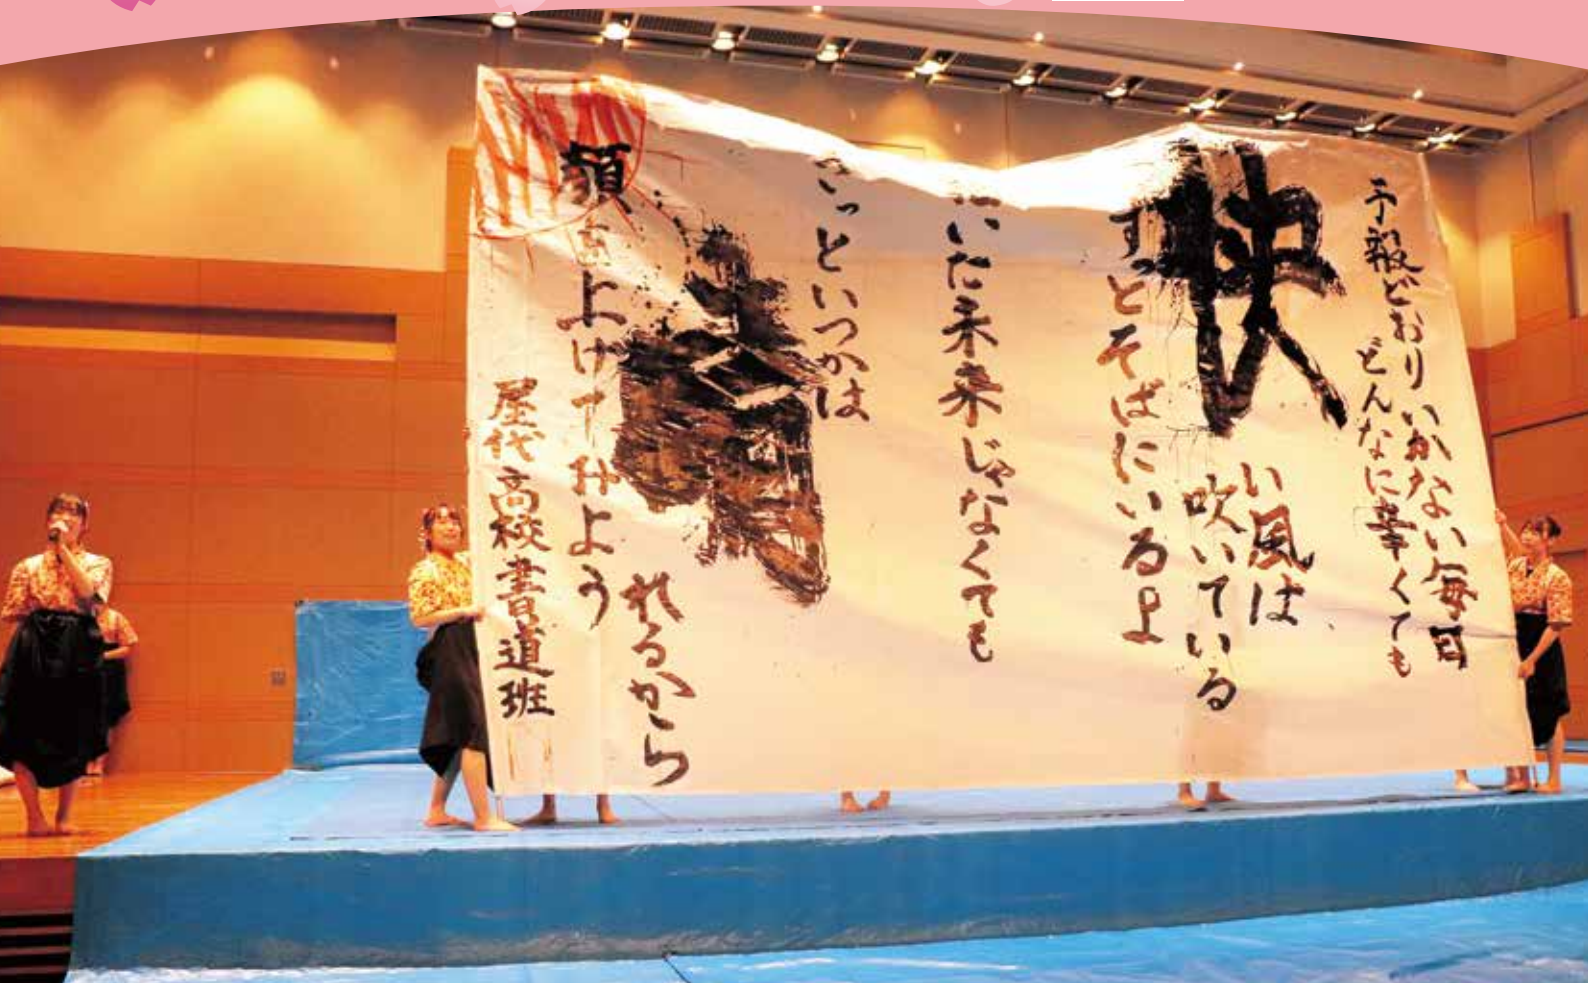 予報どおりいかない毎日
どんなに辛くても
快い風は
吹いている
ずっとそばにいるよ
いた未来じゃなくても
きっといつかは
晴れるから
顔を上げてみよう
屋代高校書道班